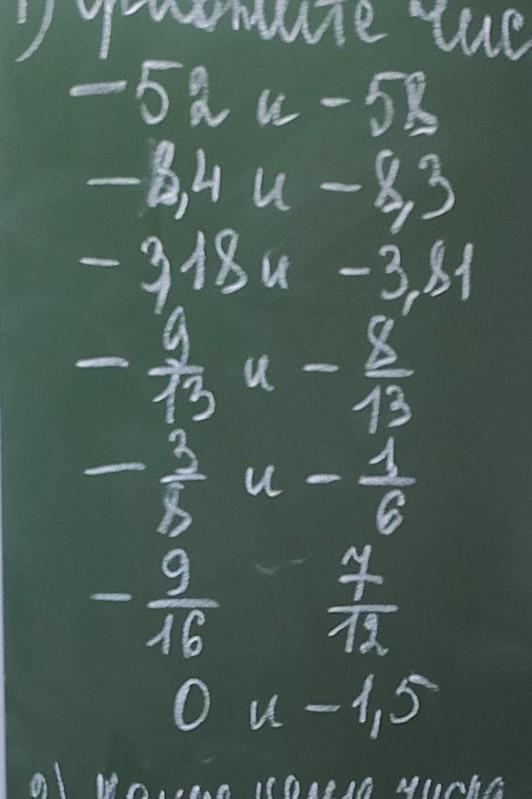 1) Сравните чис
-52 и -58
-8,4 и -8,3
-3,18 и -3,81
-9/13 и -8/13
-3/8 и -1/6
-9/16 7/12
0 и -1,5
2) числа